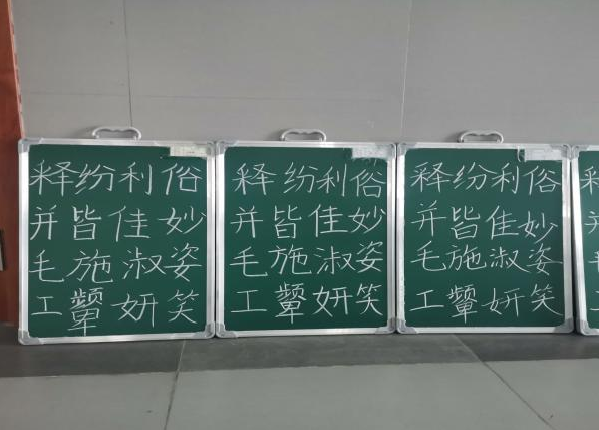 释纷利俗
并皆佳妙
毛施淑姿
工颦妍笑
释纷利俗
并皆佳妙
毛施淑姿
工颦妍笑
释纷利俗
并皆佳妙
毛施淑姿
工颦妍笑